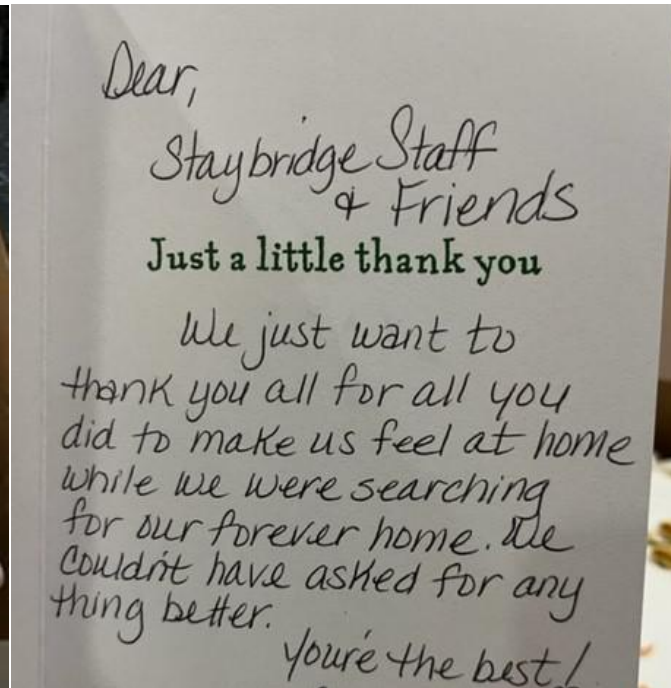 Dear,
Staybridge Staff
& Friends
Just a little thank you
We just want to
thank you all for all you
did to make us feel at home
while we were searching
for our forever home. We
couldn't have asked for any
thing better.
You're the best!